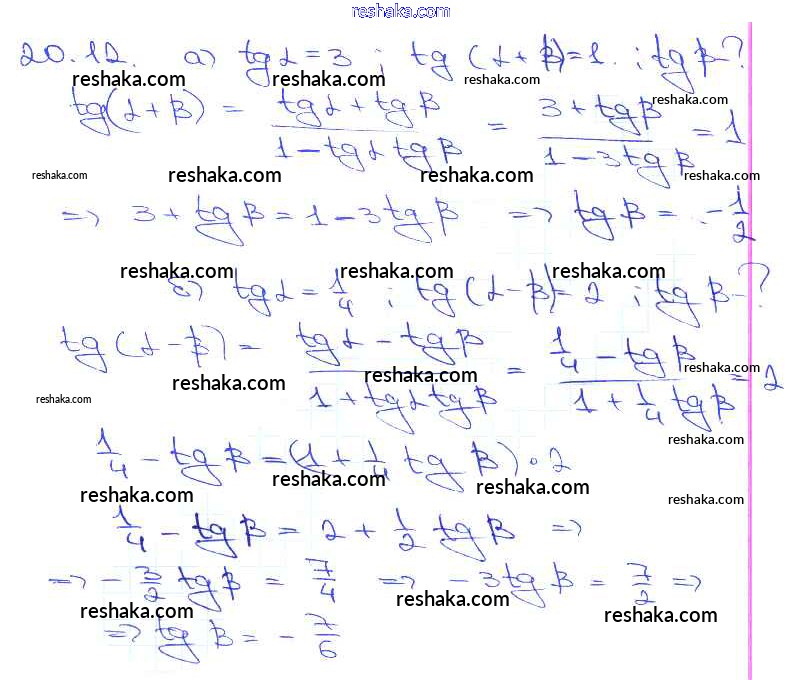 reshaka.com
20.12. а) tg α = 3 ; tg (α + β) = 1. ; tg β - ?
reshaka.com reshaka.com reshaka.com
tg(α + β) = (tg α + tg β)/(1 - tg α tg β) = (3 + tg β)/(1 - 3 tg β) = 1
reshaka.com
reshaka.com reshaka.com reshaka.com reshaka.com
=> 3 + tg β = 1 - 3 tg β => tg β = - 1/2
reshaka.com reshaka.com reshaka.com
б) tg α = 1/4 ; tg (α - β) = 2 ; tg β - ?
tg (α - β) = (tg α - tg β)/(1 + tg α tg β) = (1/4 - tg β)/(1 + 1/4 tg β) = 2
reshaka.com reshaka.com reshaka.com
reshaka.com
1/4 - tg β = (1 + 1/4 tg β) · 2
reshaka.com
reshaka.com reshaka.com reshaka.com reshaka.com
1/4 - tg β = 2 + 1/2 tg β =>
=> - 3/2 tg β = 7/4 => - 3 tg β = 7/2 =>
reshaka.com reshaka.com reshaka.com
=> tg β = - 7/6